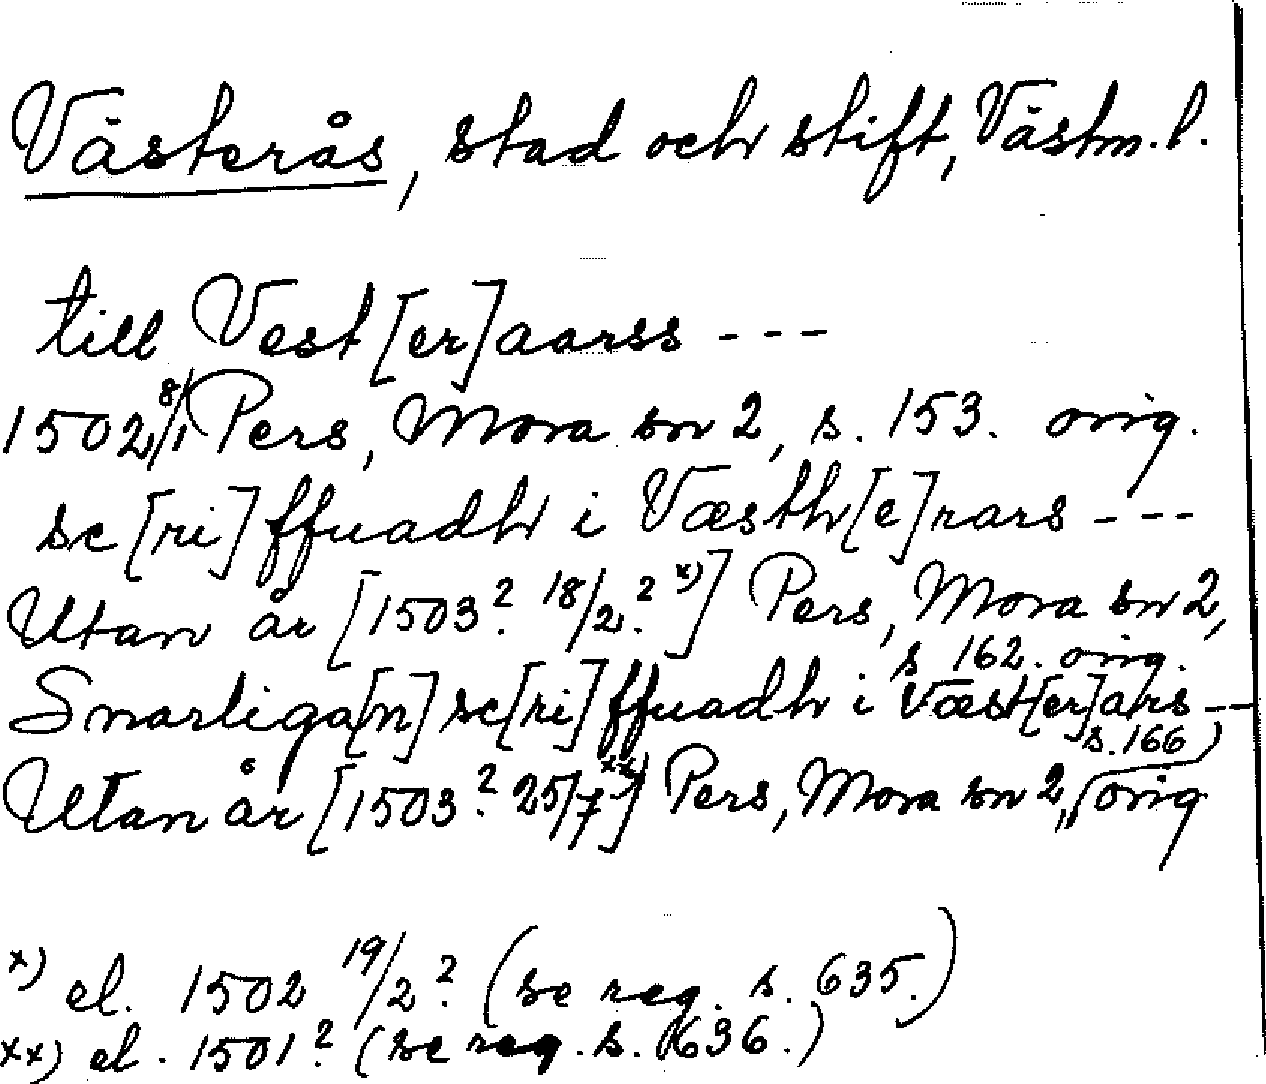 Västerås, stad och stift, Västm. l.
till Vest[er]aarss ---
1502 8/1 Pers, Mora sn 2, s. 153. orig.
sc[ri]ffuadh i Væsth[e]rars ---
Utan år [1503? 18/2? x)] Pers, Mora sn 2,
s 162. orig.
Snarliga[n] sc[ri]ffuadh i Væst[er]ars ---
s. 166)
Utan år [1503? 25/7 xx)] Pers, Mora sn 2, orig
x) el. 1502 19/2? (se reg. s. 635.)
xx) el. 1501? (se reg. s. 636.)